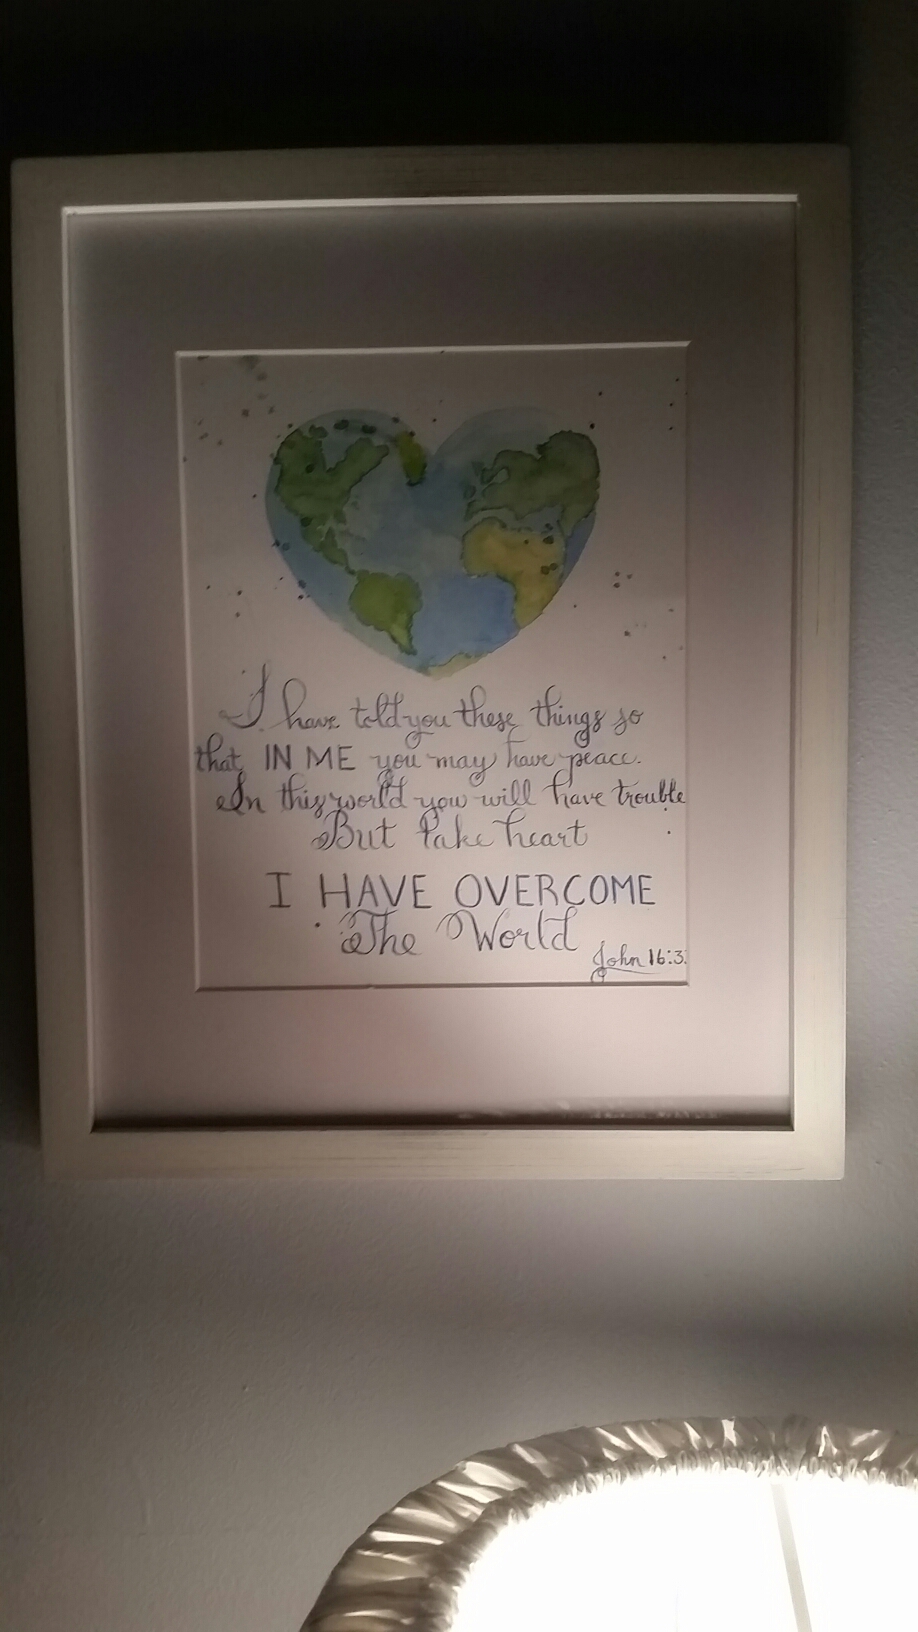 I have told you these things so
that IN ME you may have peace.
In this world you will have trouble
But take heart
I HAVE OVERCOME
The World
John 16:3